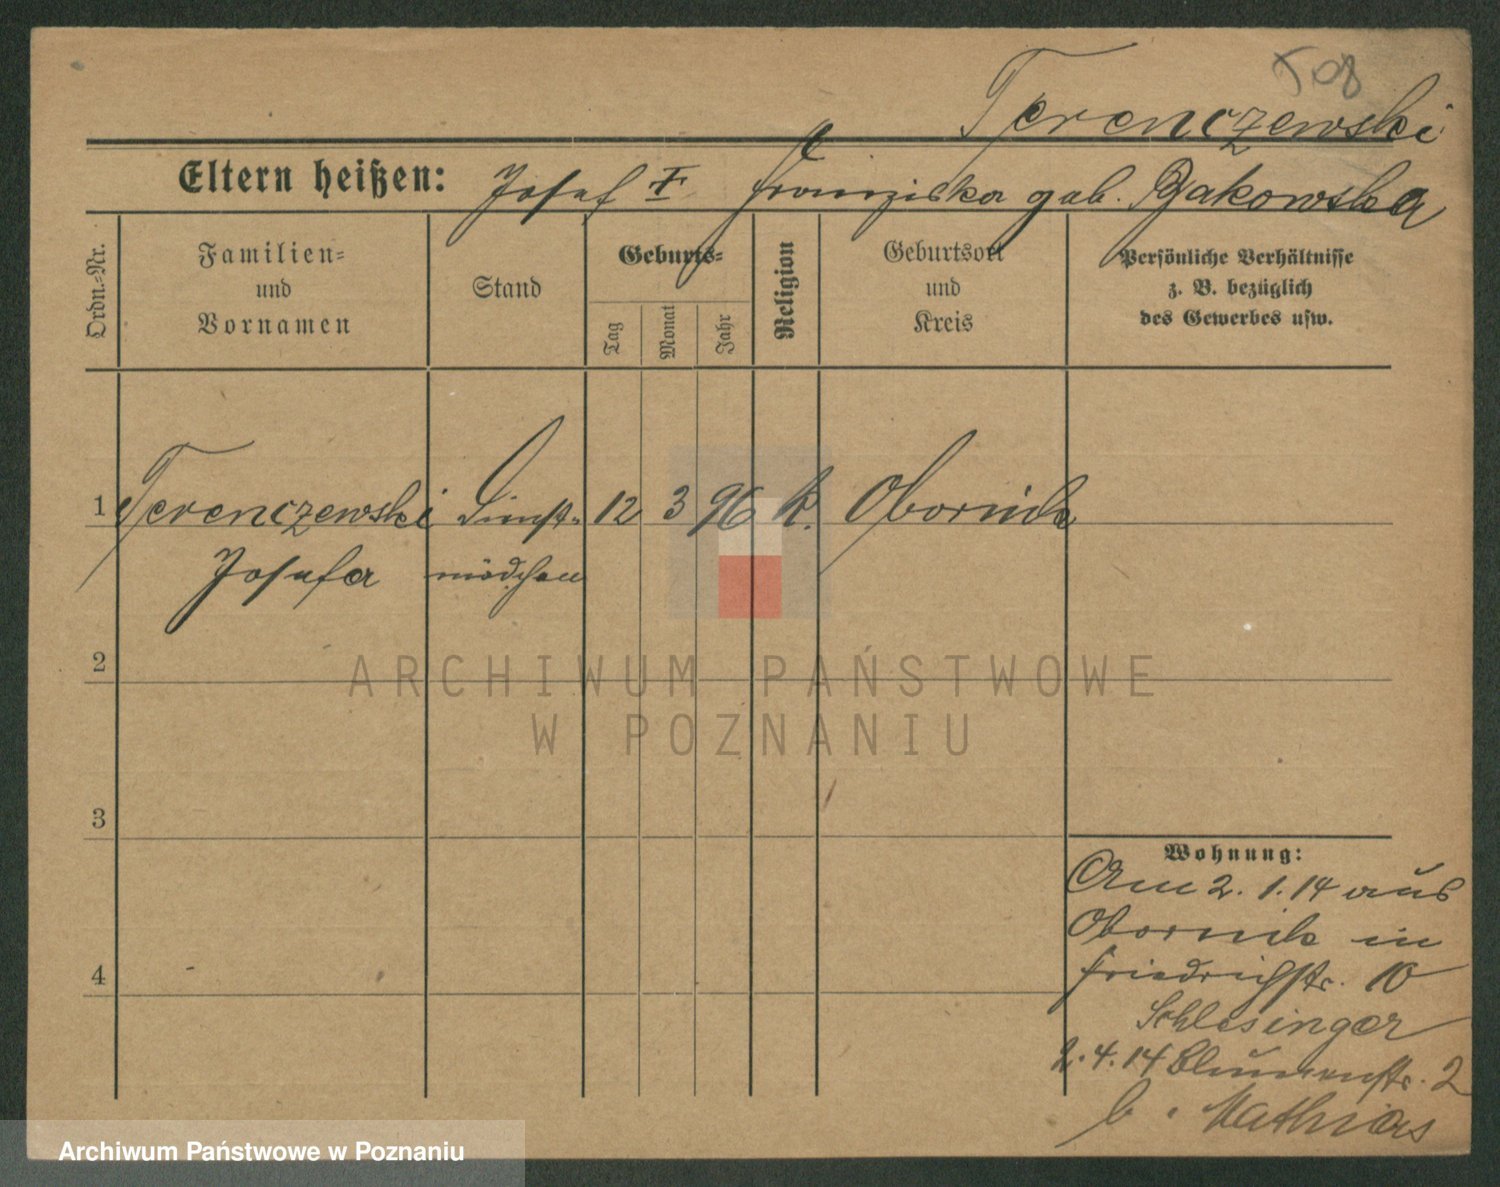 T08
Terenczewski
Eltern heißen: Josef † Franziska geb. Bąkowska
Ordn.-Nr.
Familien- und Vornamen
Stand
Geburts-
Tag
Monat
Jahr
Religion
Geburtsort und Kreis
Persönliche Verhältnisse
z. B. bezüglich
des Gewerbes usw.
1 Terenczewski Dienst- 12 3 96 k. Obornik
Josefa mädchen
2
ARCHIWUM PAŃSTWOWE
W POZNANIU
3
Wohnung:
Am 2. 1. 14 aus
Obornik in
Friedrichstr. 10
Schlesinger
4
2.4.14 Blumenstr. 2
b. Mathias
Archiwum Państwowe w Poznaniu